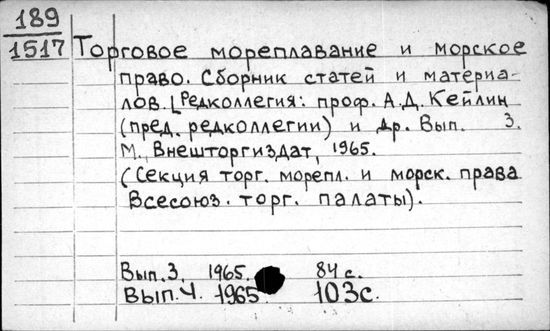 189
1517
Торговое мореплавание и морское
право. Сборник статей и материа-
лов. [Редколлегия: проф. А.Д. Кейлин
(пред. редколлегии) и др. Вып. 3.
М., Внешторгиздат, 1965.
(Секция торг. морепл. и морск. права
Всесоюз. торг. палаты).
Вып. 3. 1965. 84 с.
Вып. 4. 1965 103с.